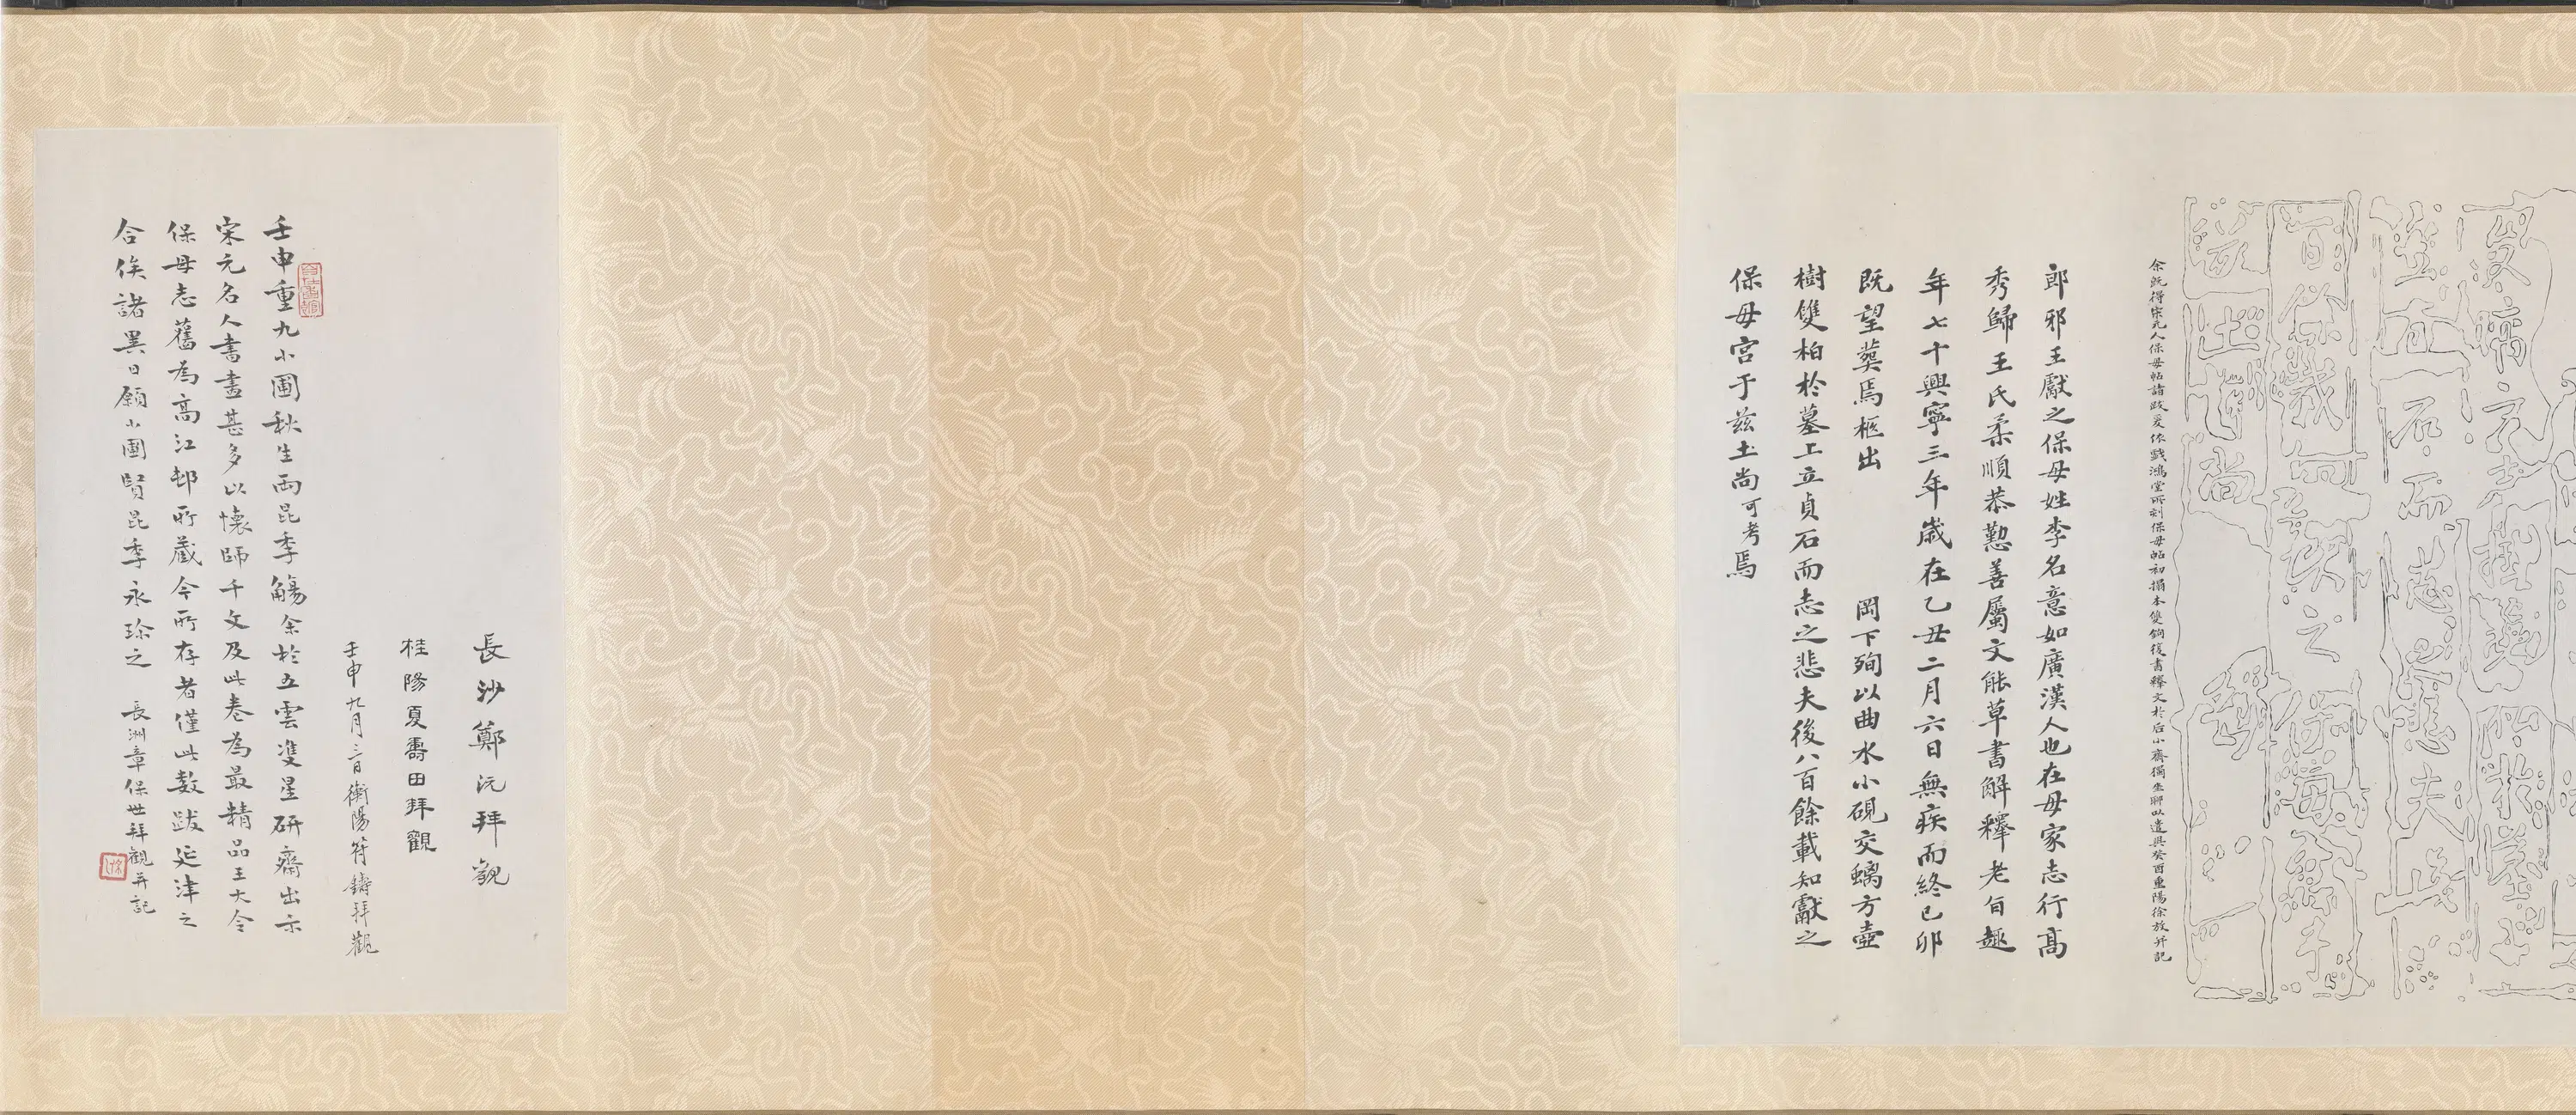 夜㬵元□掛□於堲土
塋立石而志悲夫此
百餘載知獻之保母宮于
茲土者尚□焉
余既得宋元人保母帖諸跋爰依戲鴻堂所刻保母帖初搨本雙鉤復書釋文於后小齋獨坐聊以遣興癸酉重陽徐放并記
郎邪王獻之保母姓李名意如廣漢人也在母家志行高
秀歸王氏柔順恭懃善屬文能草書解釋老旨趣
年七十興寧三年歲在乙丑二月六日無疾而終已卯
既望葬焉柩出 岡下殉以曲水小硯交螭方壺
樹雙柏於墓上立貞石而志之悲夫後八百餘載知獻之
保母宮于茲土尚可考焉
長沙鄭沅拜觀
桂陽夏壽田拜觀
壬申九月三日衡陽符鑄拜觀
壬申重九小圃秋生兩昆季觴余於五雲雙星研齋出示
宋元名人書畫甚多以懷師千文及此卷為最精品王大令
保母志舊為高江邨所藏今所存者僅此數跋延津之
合俟諸異日願小圃賢昆季永珍之 長洲章保世拜觀并記